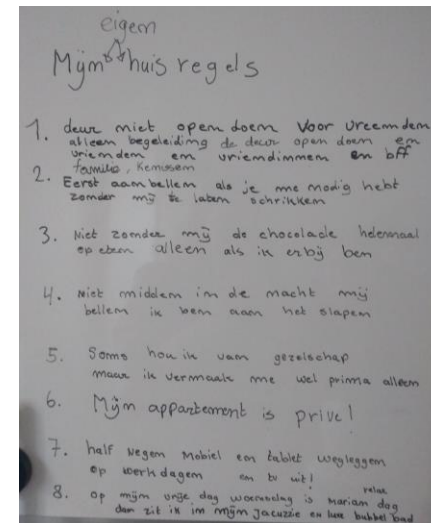 eigem
Mijm huis regels
1. deur miet opem doem voor vreemdem
alleem begeleiding de deur opem doem em
vriemdem em vriemdimmem em bff
familie, Kemissem
2. Eerst aambellem als je me modig hebt
zomder mij te latem schrikkem
3. Niet zomder mij de chocolade helemaal
op etem alleem als ik erbij bem
4. Niet middem im de macht mij
bellem ik bem aam het slapem
5. Soms hou ik vam gezelschap
maar ik vermaak me wel prima alleem
6. Mijm appartement is prive!
7. half megem mobiel em tablet wegleggem
op werkdagem em tv uit!
8. op mijm vrije dag woemsdag is mariam relax dag
dam zit ik im mijm jacuzzie em luxe bubbel bad